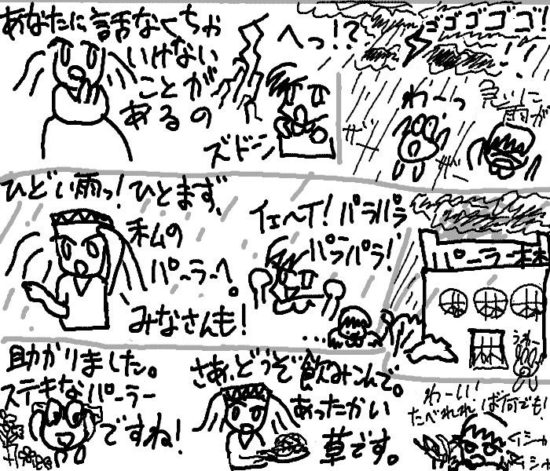 あなたに話なくちゃ
いけない
ことが
あるの
へっ!?
ズドーン
ゴゴゴゴゴ!
わーっ
急に
雨が
ザー
ザー
ひどい雨っ!ひとまず、
私の
パーラーへ。
みなさんも!
イェーイ!パラパラ
パラパラ!
…
パーラー林
うわー
助かりました。
ステキなパーラー
ですね!
さあ、どうぞ飲みこんで。
あったかい
草です。
わーい!
たべれれば何でも!
ムシャ
ムシャ